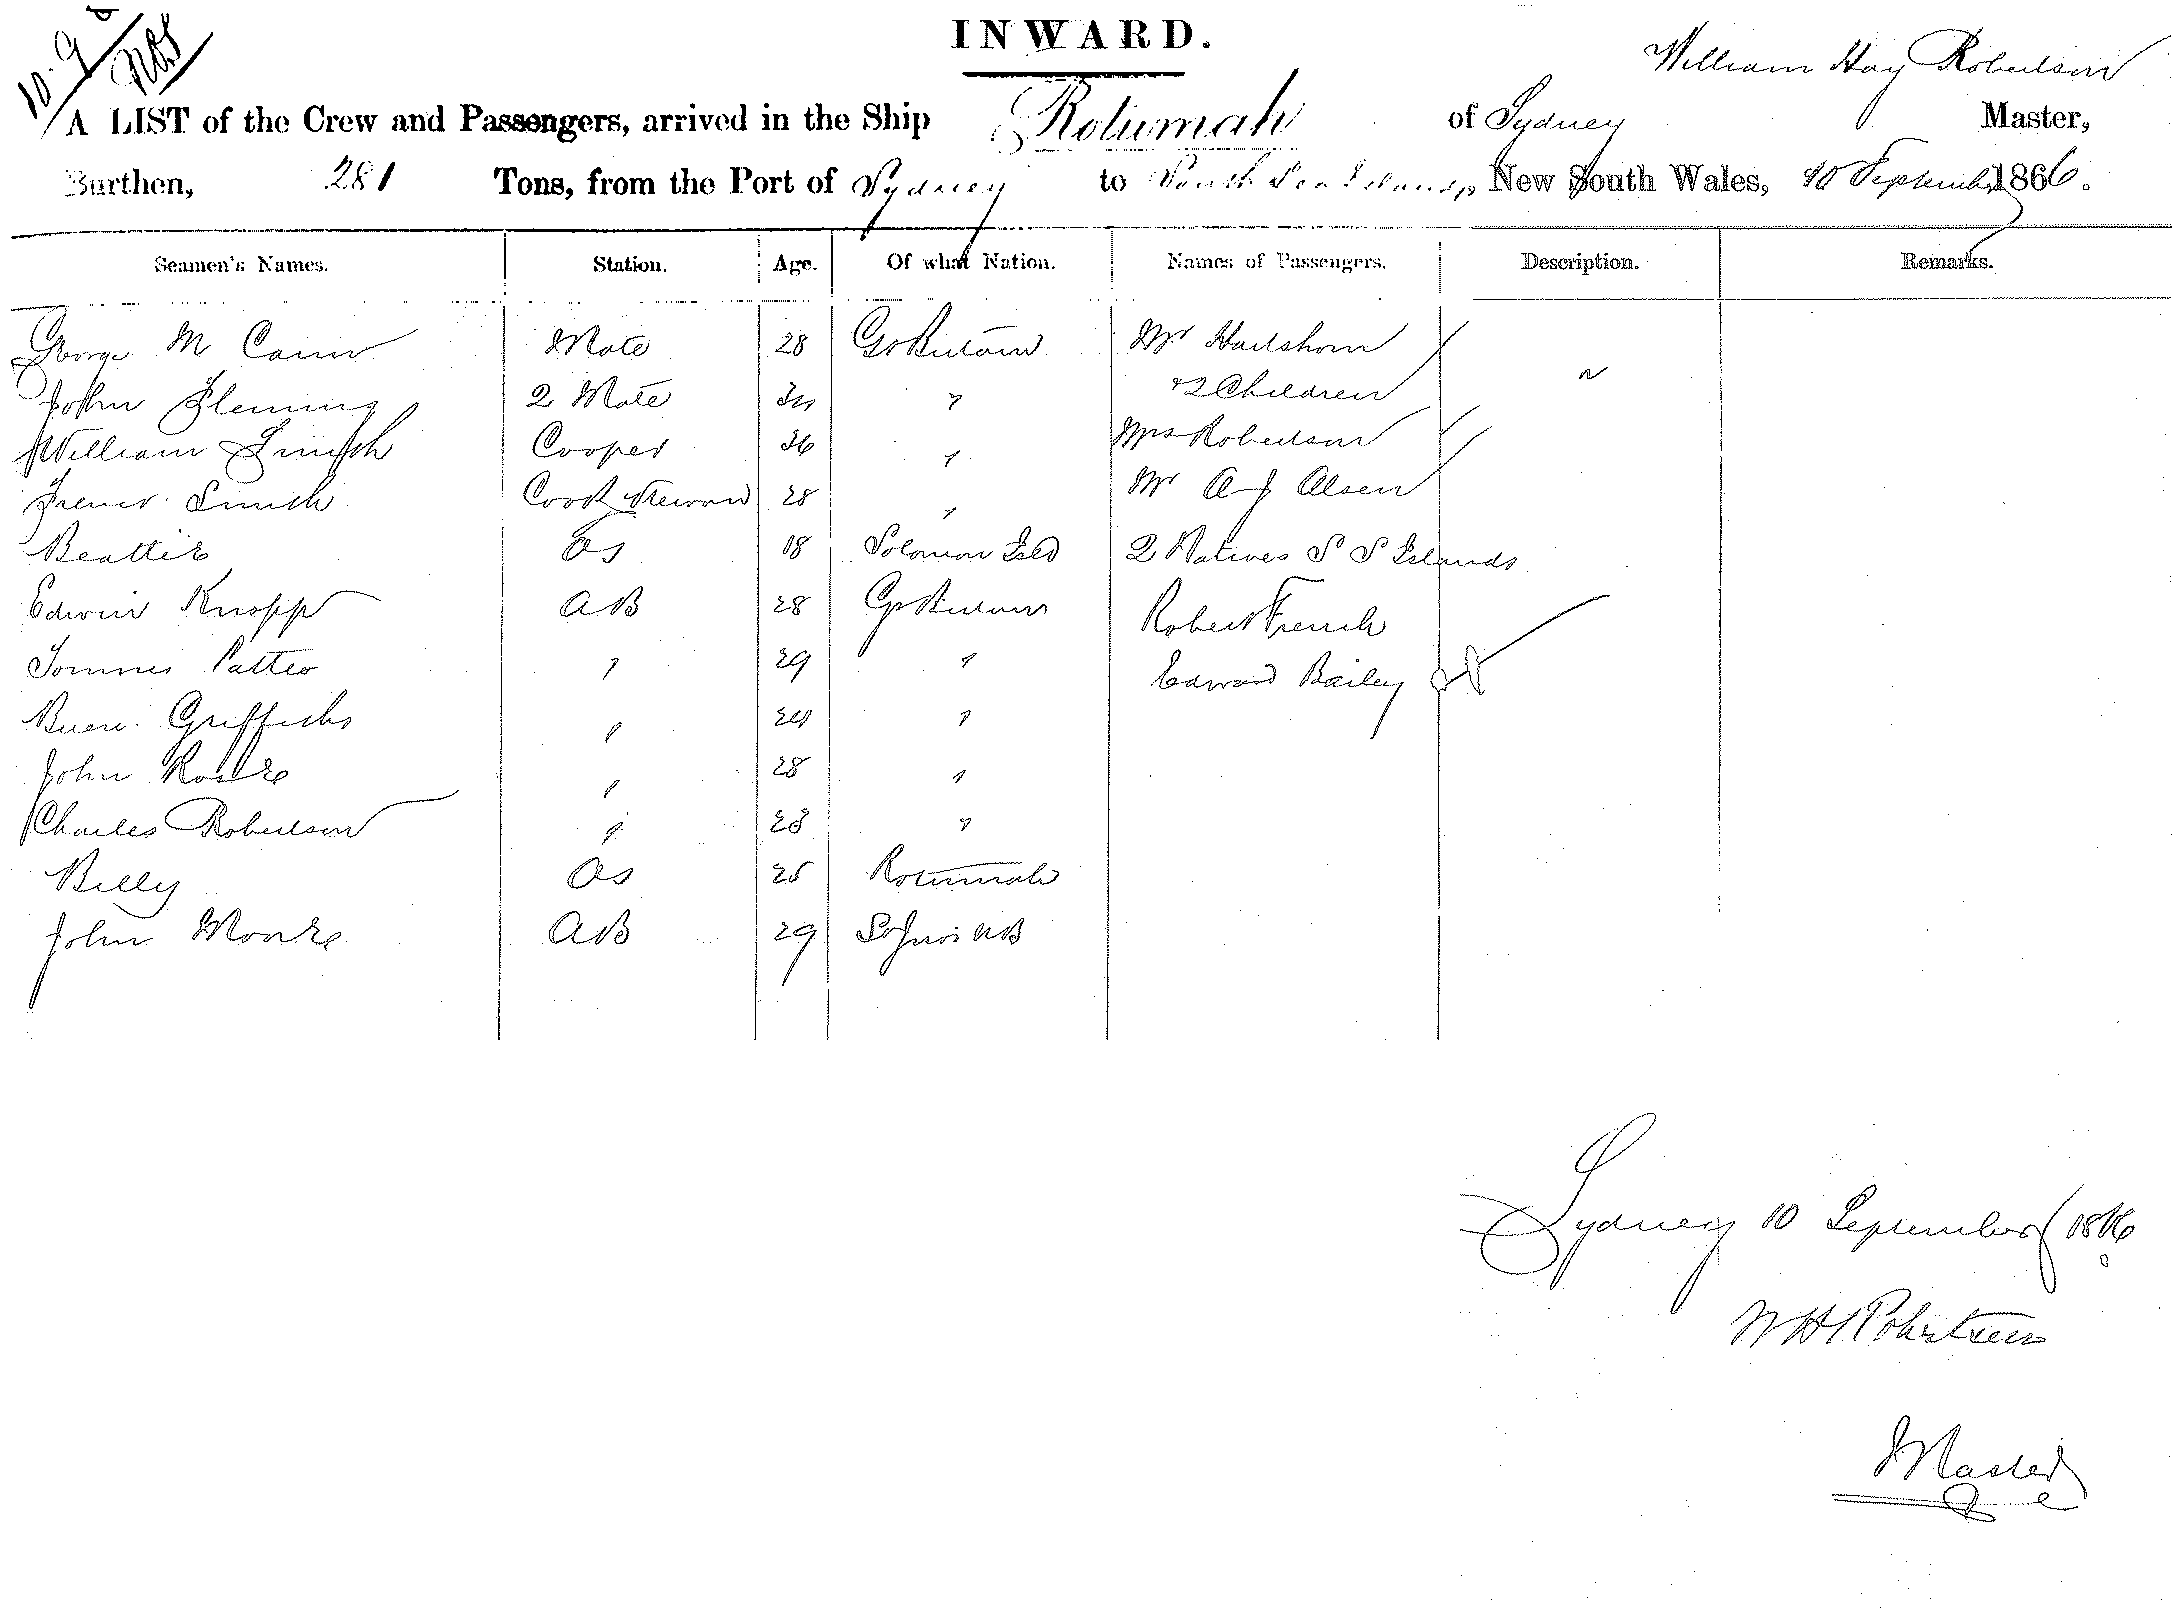 10.9
INWARD.
William Hay Robertson
A LIST of the Crew and Passengers, arrived in the Ship Rotumah of Sydney Master,
Burthen, 281 Tons, from the Port of Sydney to South Sea Islands New South Wales, 10 September 1866.
Seamen's Names. Station. Age. Of what Nation. Names of Passengers. Description. Remarks.
George M Cann Mate 28 Gt Britain Mr Hailshorn
John Fleming 2 Mate 34 " & 2 Children "
William Smith Cooper 36 " Mrs Robertson
Smith Cook & Steward 28 " Mr A J Olsen
Beattie OS 18 Solomon Isld 2 Natives S S Islands
Edwin Knopp AB 28 Gt Britain Robert French
Patter " 29 " Edward Bailey
Griffiths " 24 "
John " 28 "
Charles Robertson " 28 "
Billy OS 25 Rotumah
John Moore AB 29
Sydney 10 September 1866
W H Robertson
Master